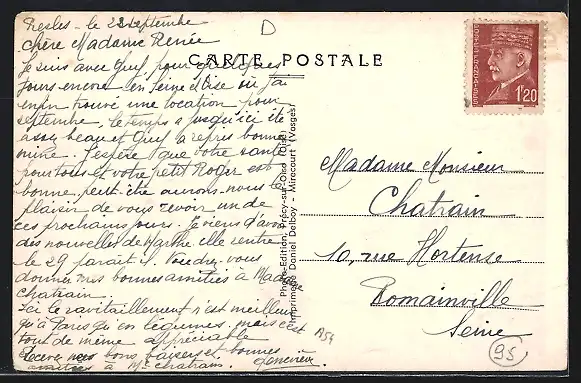 Presles - le 22 septembre
D
CARTE POSTALE
chère Madame Renée
Je suis avec Guy, pour quelques
jours encore en Seine et Oise où j'ai
enfin trouvé une location pour
septembre. le temps a jusqu'ici été
assez beau et Guy a repris bonne
mine. J'espère que votre santé
pour tous et votre petit Roger est
bonne. peut-être aurons-nous le
plaisir de vous revoir un de
ces prochains jours. Je viens d'avoir
des nouvelles de Marthe elle rentre
le 29 paraît il. Voudrez-vous
donner mes bonnes amitiés à Madame
Chatrain.
Ici le ravitaillement est meilleur
qu'à Paris qu'en légumes, mais c'est
tout de même appréciable
Recevez mes bons baisers et bonnes
amitiés à Mr Chatrain. Geneviève.
Photo-Edition, Précy-sur-Oise (Oise)
Imprimerie Daniel Delboy - Mirecourt (Vosges)
A54
1F20
Madame Monsieur
Chatrain
10, rue Hortense
Romainville
Seine
95